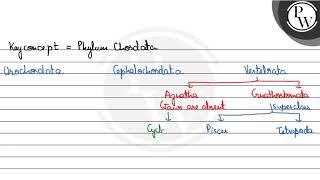 PW
Key concept = Phylum Chordata
Urochordata Cephalochordata Vertebrata
Agnatha Gnathostomata
(Jaws are absent (Superclass
Cycl Pisces Tetrapoda